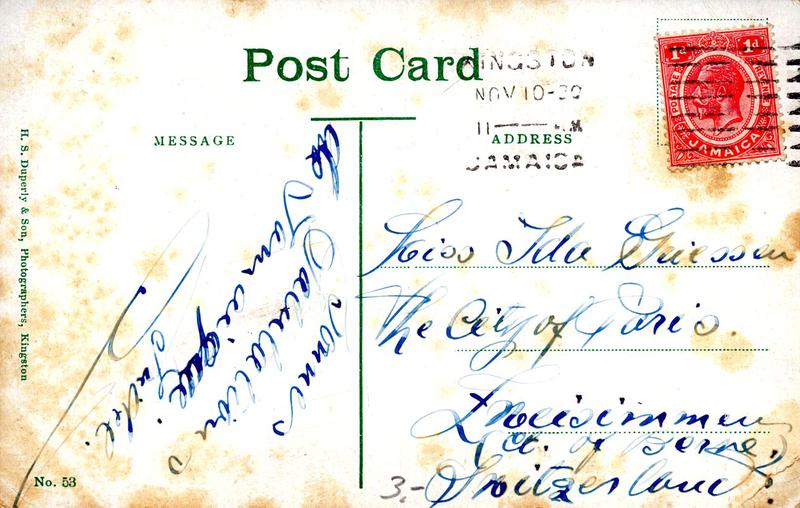 Post Card
KINGSTON
NOV 10-30
11 — AM
JAMAICA
1d 1d
POSTAGE & REVENUE
JAMAICA
MESSAGE
ADDRESS
Bonnes
Salutations
de Jamaique
Miss Ida Griessen
The City of Paris.
Zweisimmen
(Ct. of Berne)
Switzerland.
3,-
H. S. Duperly & Son, Photographers, Kingston
No. 53